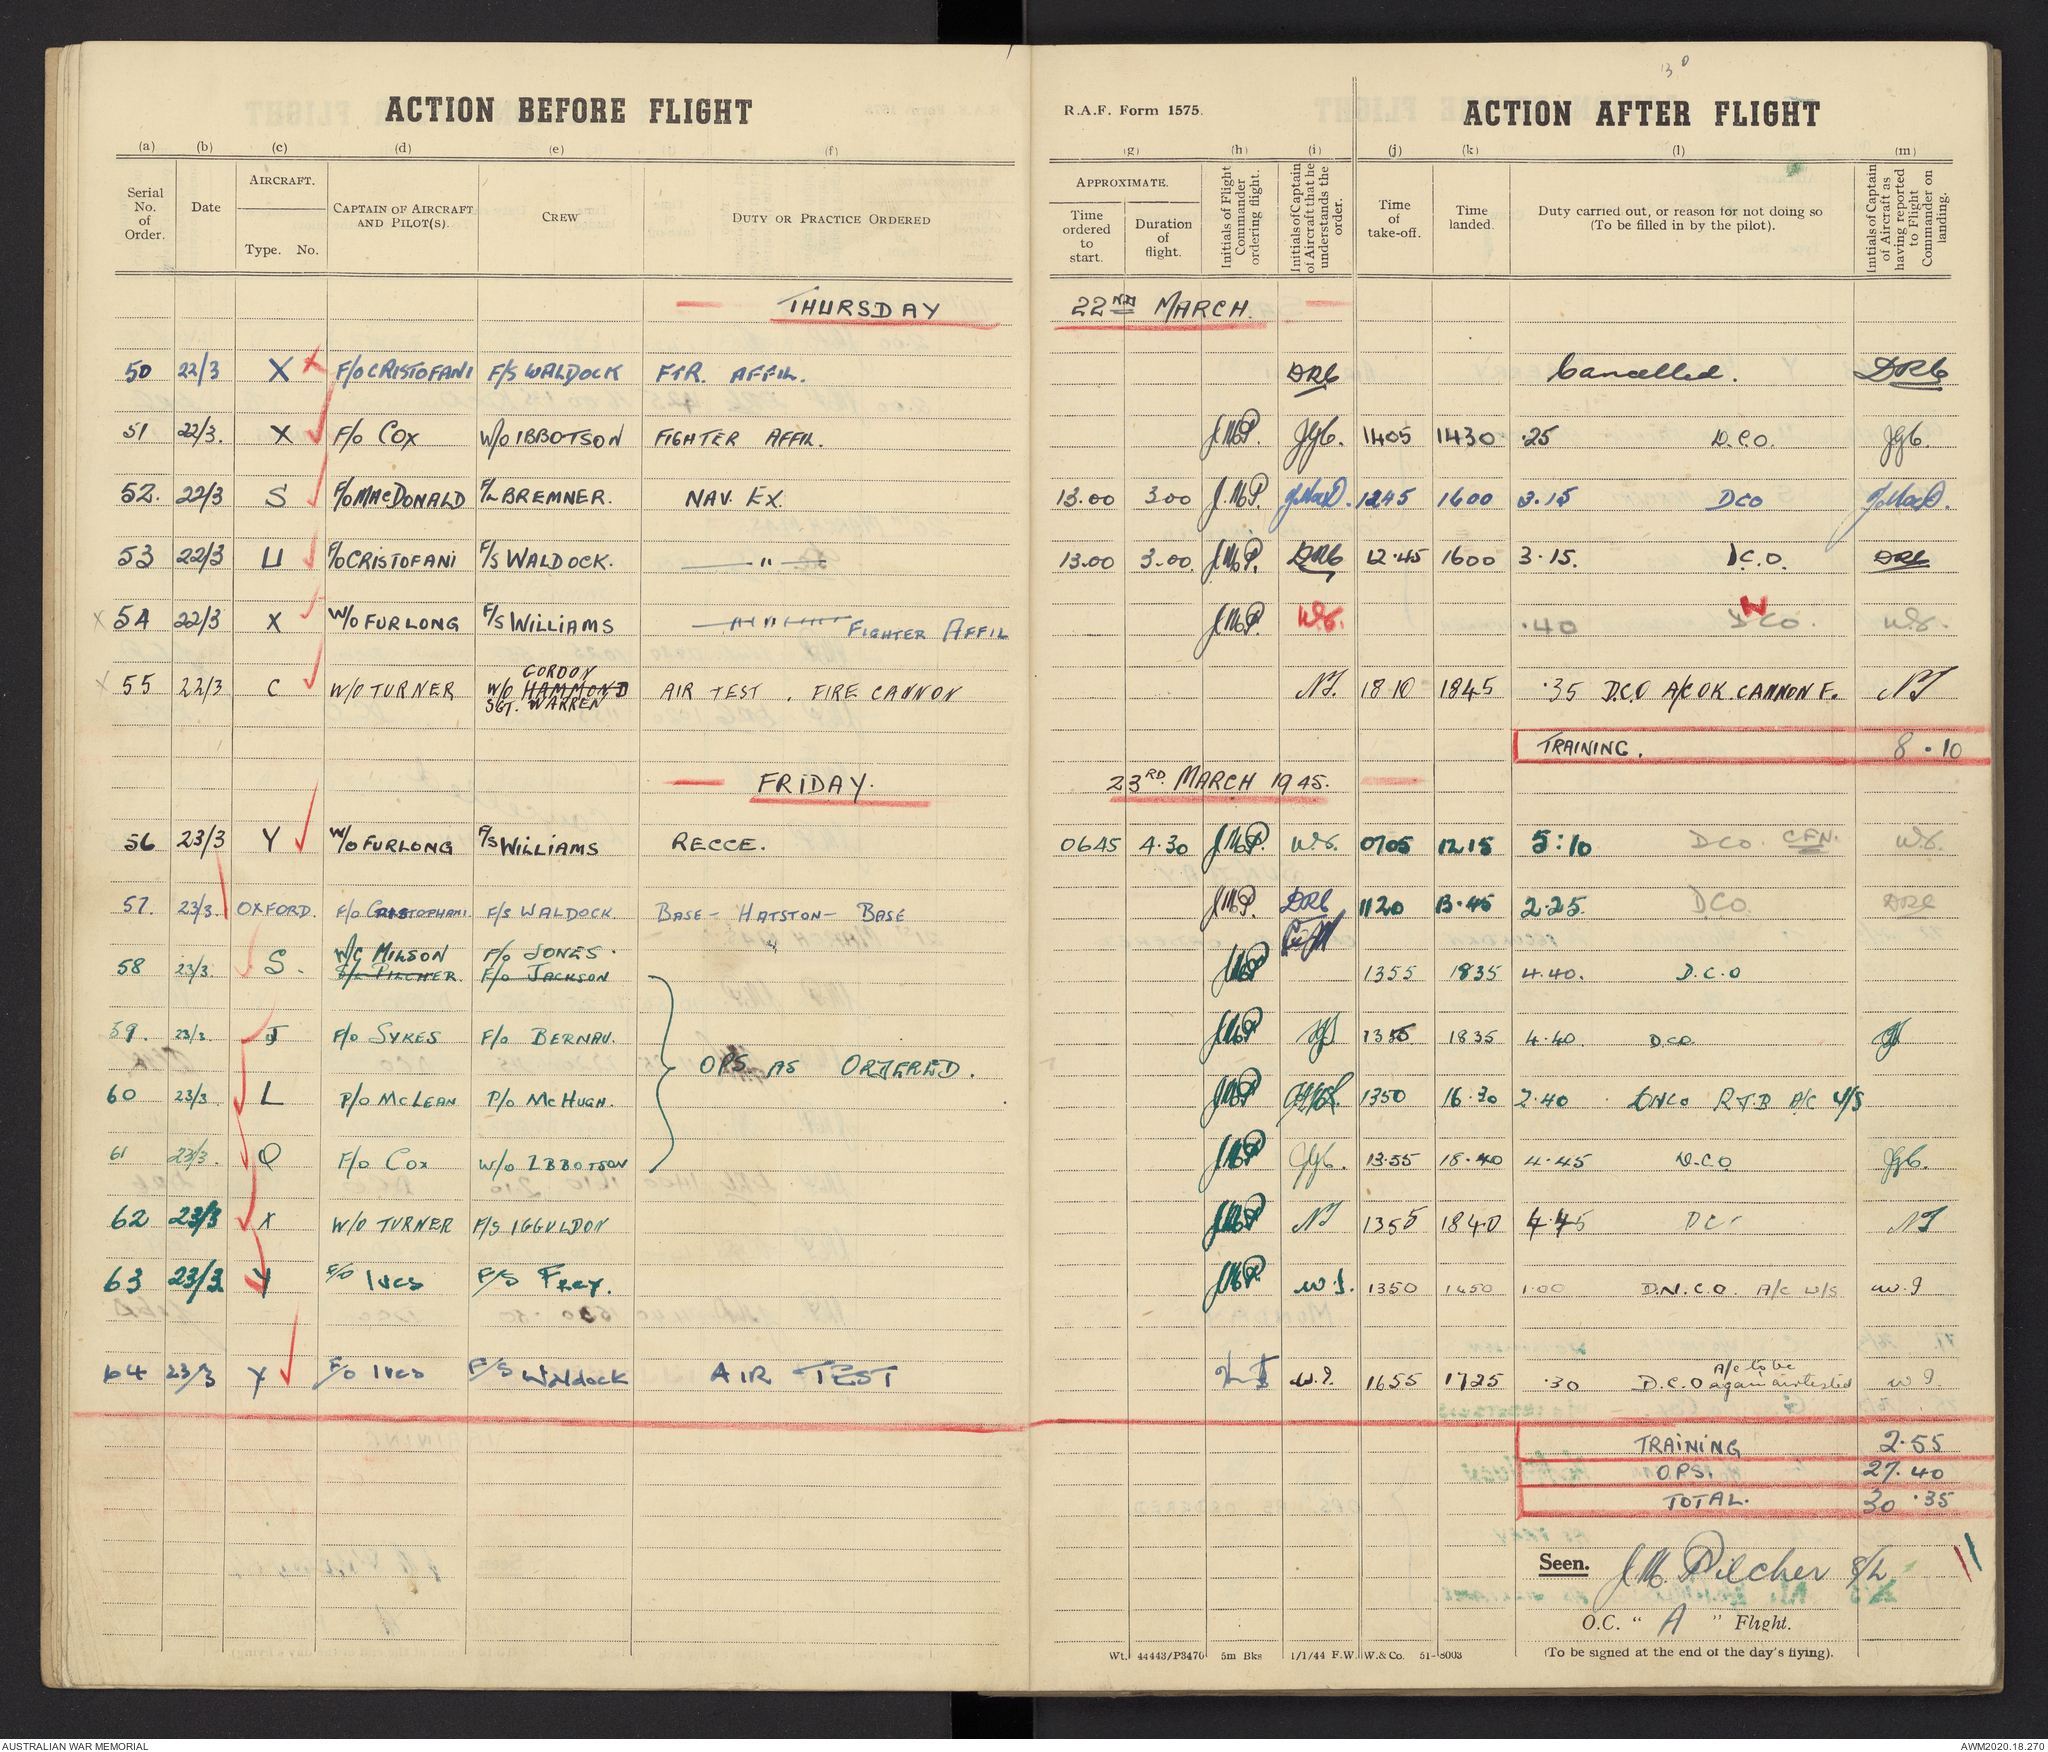 ACTION BEFORE FLIGHT
(a) (b) (c) (d) (e) (f)
Serial No. of Order. Date AIRCRAFT. Type. No. CAPTAIN OF AIRCRAFT AND PILOT(S). CREW DUTY OR PRACTICE ORDERED
THURSDAY
50 22/3 X F/O CRISTOFANI F/S WALDOCK FTR. AFFIL.
51 22/3. X F/O COX W/O IBBOTSON FIGHTER AFFIL.
52. 22/3 S F/O MACDONALD F/L BREMNER. NAV. EX.
53 22/3 U F/O CRISTOFANI F/S WALDOCK. — " —
54 22/3 X W/O FURLONG F/S WILLIAMS FIGHTER AFFIL
55 22/3 C W/O TURNER W/O HAMMOND GORDON SGT. WARREN AIR TEST. FIRE CANNON
FRIDAY.
56 23/3 Y W/O FURLONG F/S WILLIAMS RECCE.
57. 23/3. OXFORD. F/O CRISTOPHANI F/S WALDOCK. BASE - HATSTON - BASE
58 23/3. S. W/C MILSON F/L PILCHER. F/O JONES. F/O JACKSON
59. 23/3. J F/O SYKES F/O BERNAU.
OPS. AS ORDERED.
60 23/3. L P/O MCLEAN P/O MCHUGH.
61 23/3. Q F/O COX W/O IBBOTSON
62 23/3 X W/O TURNER F/S IGGULDON
63 23/3 Y F/O Ives F/S Frey.
64 23/3 Y F/O Ives F/S Waldock AIR TEST
R.A.F. Form 1575. ACTION AFTER FLIGHT
(g) (h) (i) (j) (k) (l) (m)
APPROXIMATE. Time ordered to start. Duration of flight. Initials of Flight Commander ordering flight. Initials of Captain of Aircraft that he understands the order. Time of take-off. Time landed. Duty carried out, or reason for not doing so (To be filled in by the pilot). Initials of Captain of Aircraft as having reported to Flight Commander on landing.
22ND MARCH.
DRC Cancelled. DRC
J.M.P. JGC. 1405 1430 .25 D.C.O. JGC.
13.00 3.00 J.M.P. 1245 1600 3.15 DCO
13.00 3.00. J.M.P. DRC 12.45 1600 3.15. D.C.O. DRC
J.M.P. W.F. .40 DNCO. W.F.
NT. 1810 1845 .35 D.C.O A/C OK. CANNON F. NT
TRAINING. 8.10
23RD. MARCH 1945.
0645 4.30 J.M.P. W.F. 0705 1215 5:10 DCO CFN. W.F.
J.M.P. DRC 1120 13.45 2.25. DCO DRC
J.M.P 1355 1835 4.40. D.C.O
J.M.P 1355 1835 4.40. D.CO.
J.M.P 1350 16.30 2.40 DNCO R.T.B A/C U/S
J.M.P JGC. 13.55 18.40 4.45 D.C.O JGC.
J.M.P NT 1355 1840 4.45 DCO NT
J.M.P. W.I. 1350 1450 1.00 D.N.C.O. A/C U/S W.I
W.I. 1655 1725 .30 D.C.O A/c to be again airtested W.I.
TRAINING 2.55
OPS. 27.40
TOTAL. 30.35
Seen. J.M. Pilcher S/L
O.C. " A " Flight.
Wt. 44443/P3476 5m Bks 1/1/44 F.W. W. & Co. 51-8003 (To be signed at the end of the day's flying).
AUSTRALIAN WAR MEMORIAL AWM2020.18.270